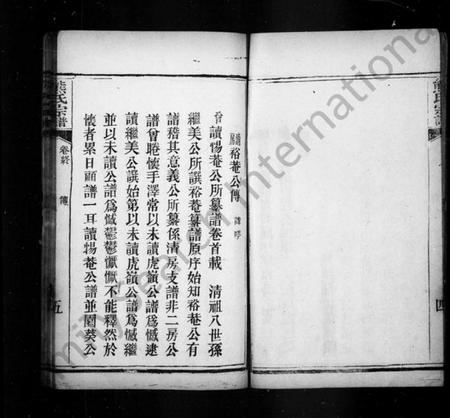 熊氏宗譜
卷終
傳
五
清房裕菴公傳
諸
曾讀惕菴公所纂譜卷首載 清祖八世孫
繼美公所譔裕菴纂譜原序始知裕菴公有
譜稽其意義公所纂係清房支譜非二房公
譜曾睠懷手澤常以未讀虎嶺公譜爲憾逮
讀繼美公譔始第以未讀虎嶺公譜爲憾繼
並以未讀公譜爲憾鬱鬱懨懨不能釋然於
懷者累日顧譜一耳讀惕菴公譜並閱葵公
熊氏宗譜
四
International